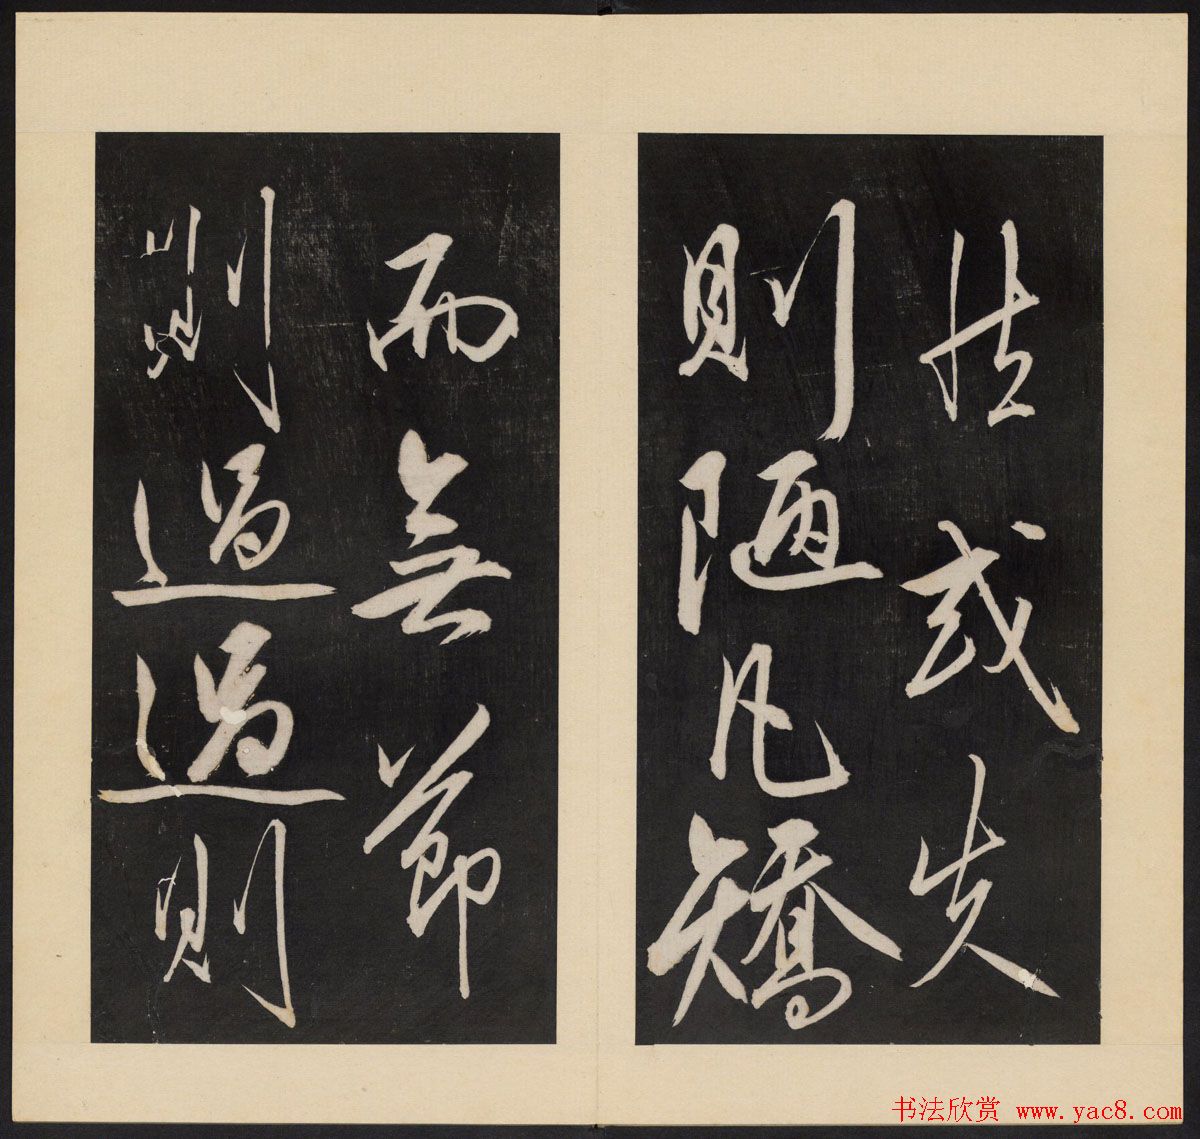 怯或失
則陋凡矯
而無節
則過過則
书法欣赏 www.yac8.com